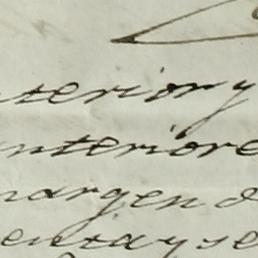 terior y
nteriore
margen d
en ca y se